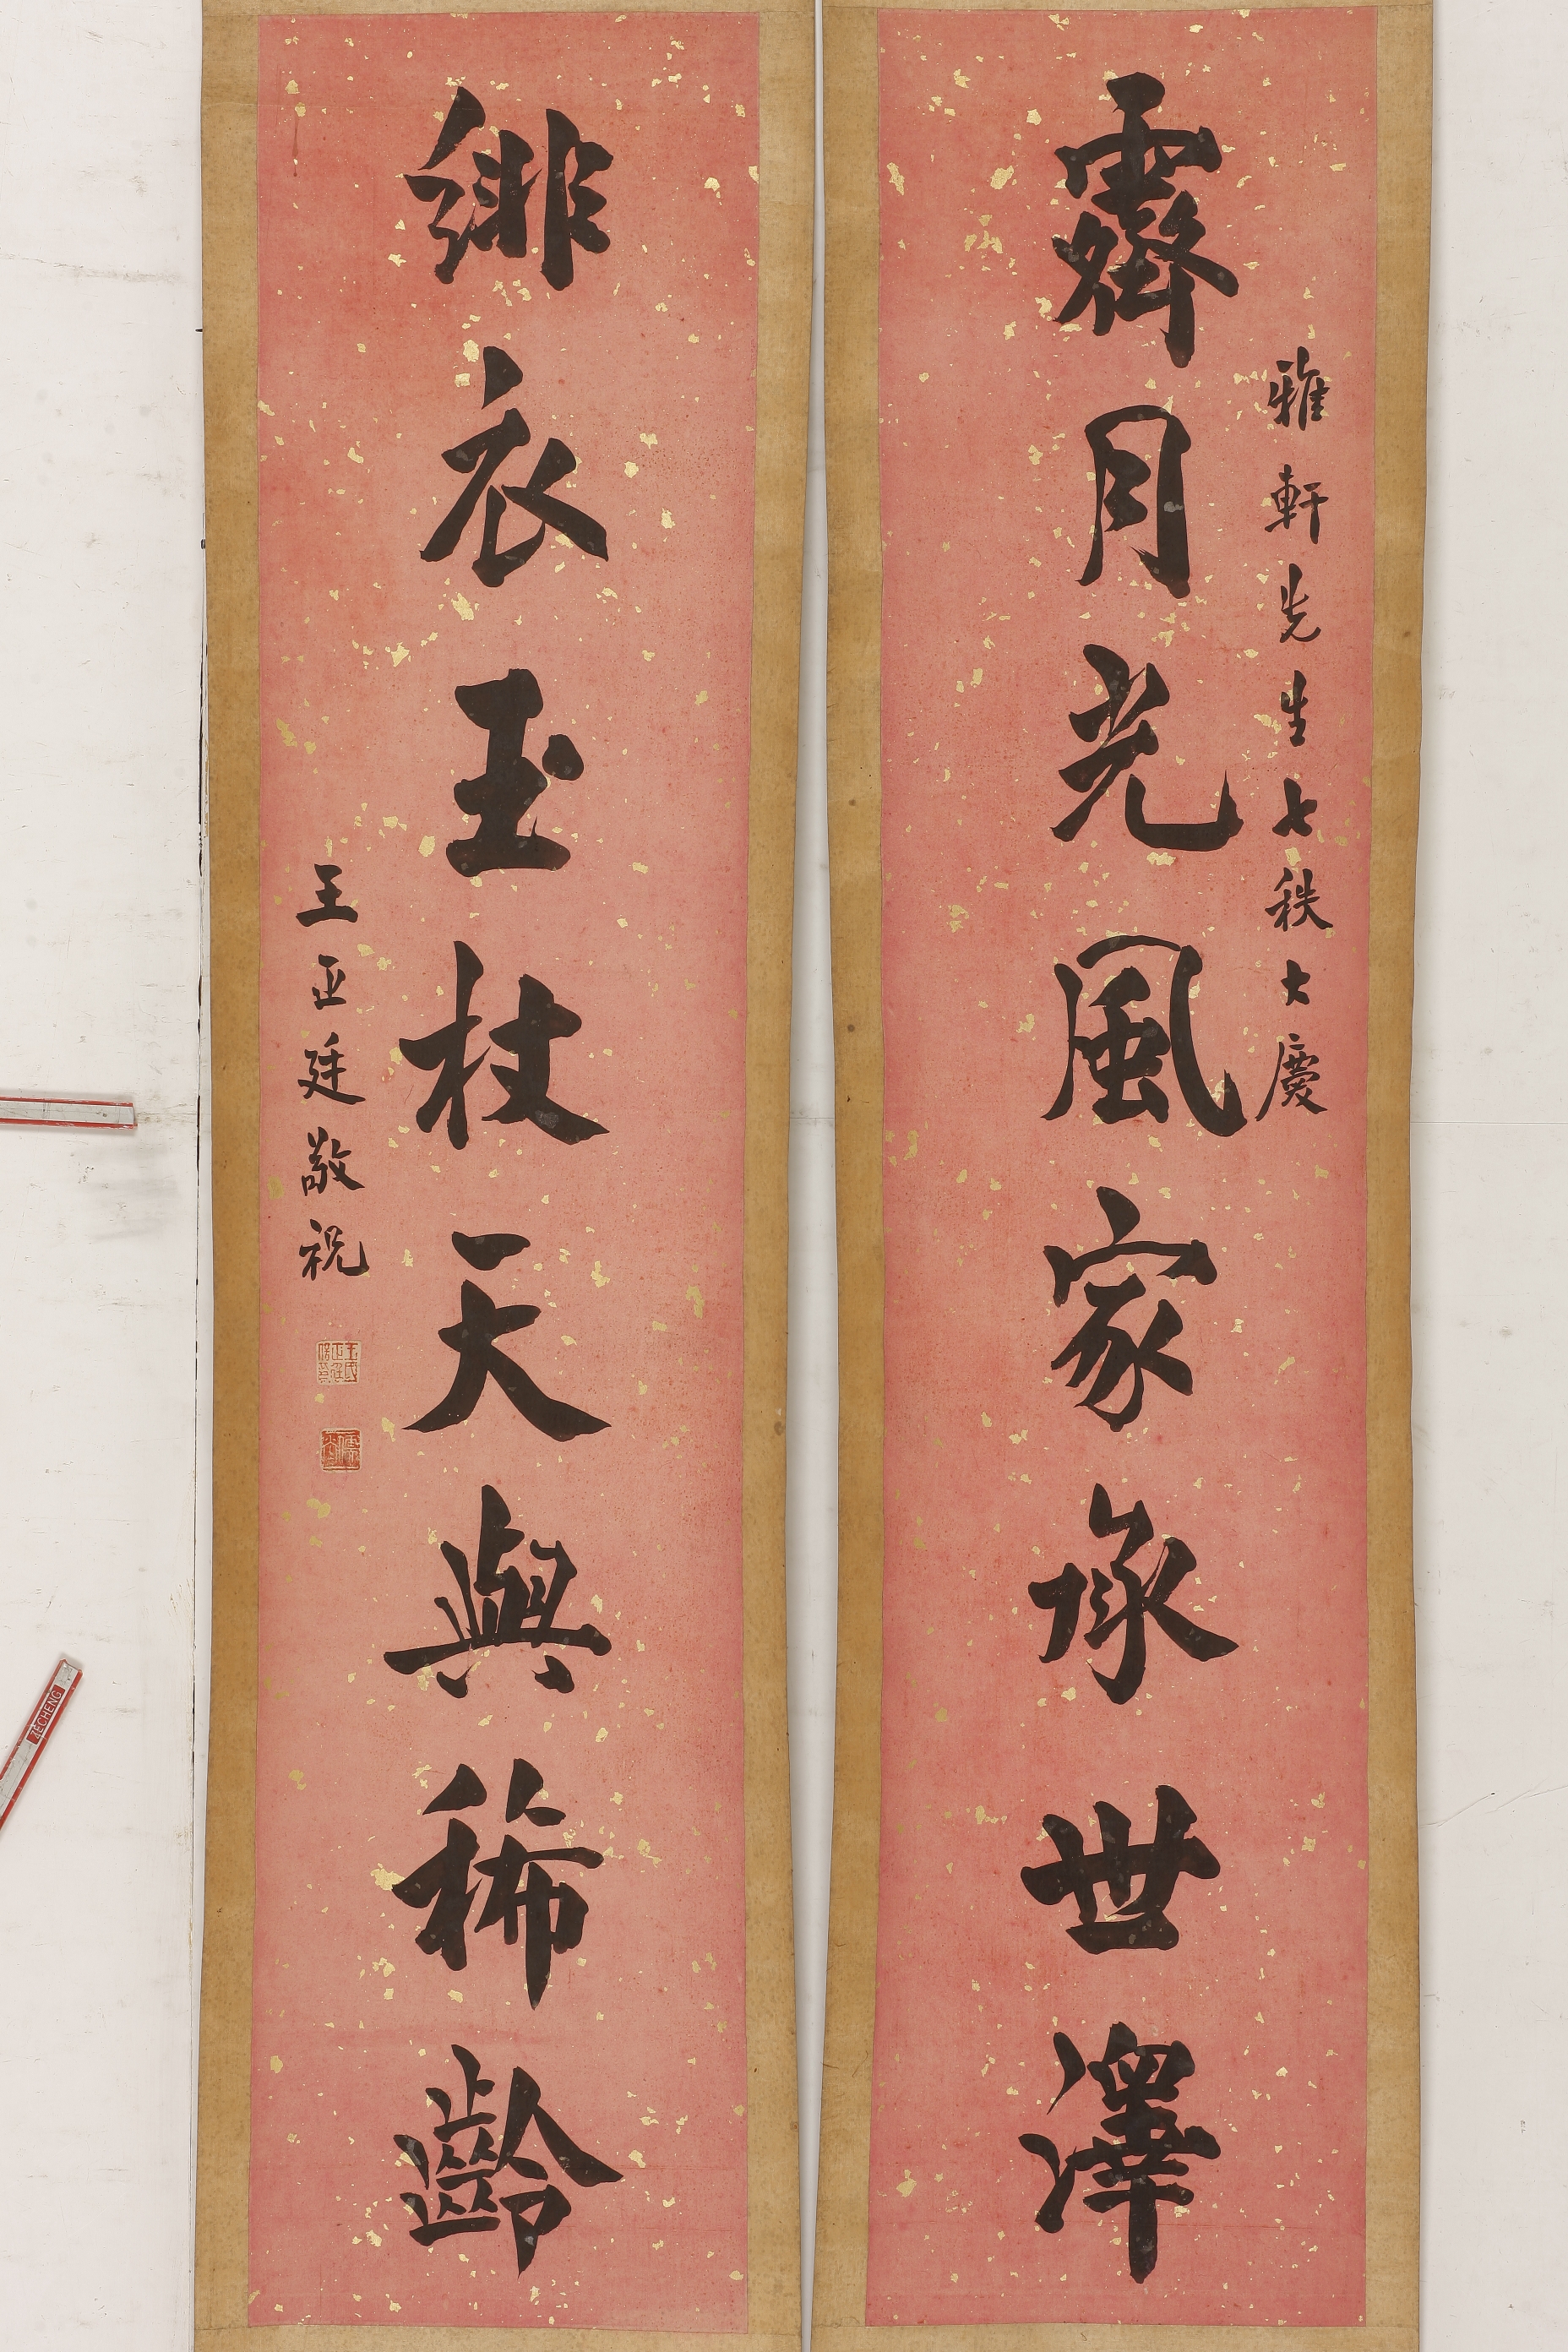 雅軒先生七秩大慶
霽月光風家承世澤
緋衣玉杖天與稀齡
王正廷敬祝
ZECHENG